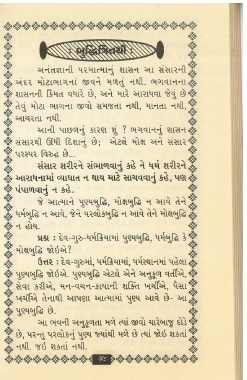 બુદ્ધિત્રિતથી :
અનંતજ્ઞાની પરમાત્માનું શાસન આ સંસારની
અંદર મોટાભાગનાં જીવને મળતું નથી. ભગવાનના
શાસનની કિંમત વધારે છે, અને મારે આરાધવા જેવું છે
તેવું મોટા ભાગના જીવો સમજતા નથી, માનતા નથી,
આચરતા નથી.
આની પાછળનું કારણ શું ? ભગવાનનું શાસન
સંસારથી ઊંધી દિશાનું છે; એટલે મોક્ષ અને સંસાર
પરસ્પર વિરુદ્ધ છે...
સંસાર શરીરને સંભાળવાનું કહે ને ધર્મ શરીરને
આરાધનામાં વ્યાઘાત ન થાય માટે સાચવવાનું કહે, પણ
પંપાળવાનું ન કહે.
જે આત્માને પુણ્યબુદ્ધિ, મોક્ષબુદ્ધિ ન આવે તેને
ધર્મબુદ્ધિ ન આવે, જેને પરલોકબુદ્ધિ ન આવે તેને મોક્ષબુદ્ધિ
ન હોય.
પ્રશ્ન : દેવ-ગુરુ-ધર્મક્રિયામાં પુણ્યબુદ્ધિ, ધર્મબુદ્ધિ કે
મોક્ષબુદ્ધિ જોઈએ?
ઉત્તર : દેવ-ગુરુમાં, ધર્મક્રિયામાં, ધર્મસ્થાનમાં પહેલા
પુણ્યબુદ્ધિ જોઈએ. પુણ્યબુદ્ધિ એટલે એને અનુકૂળ વર્તીએ,
સેવા કરીએ, મન-વચન-કાયાની શક્તિ ખર્ચીએ, પૈસા
ખર્ચીએ તેનાથી આપણા આત્મામાં પુણ્ય આવે છે- આ
પુણ્યબુદ્ધિ છે.
આ ભવની અનુકૂળતા મળે ત્યાં જીવો ચારેબાજુ દોડે
છે, પરન્તુ પરલોકનું પુણ્ય જ્યાંથી મળે છે ત્યાં જોઈ શકતાં
નથી. જઇ શકતાં નથી.